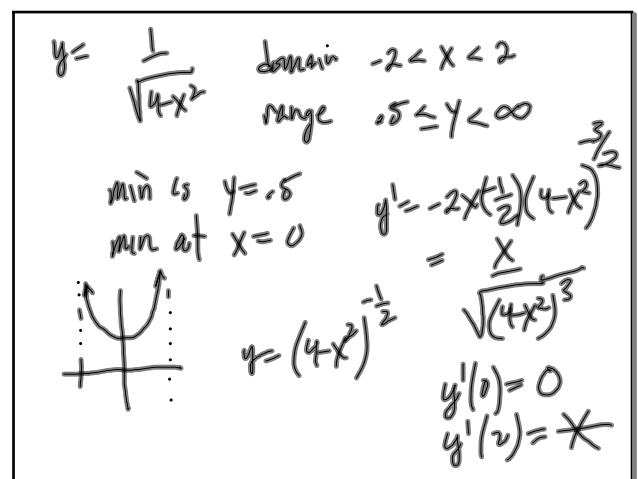 y = 1/√(4-x²) domain -2 < x < 2
range .5 ≤ y < ∞
min is y = .5
min at x = 0
y = (4-x²)^(-1/2)
y' = -2x(-1/2)(4-x²)^(-3/2)
= x/√((4-x²)³)
y'(0) = 0
y'(2) = ✳